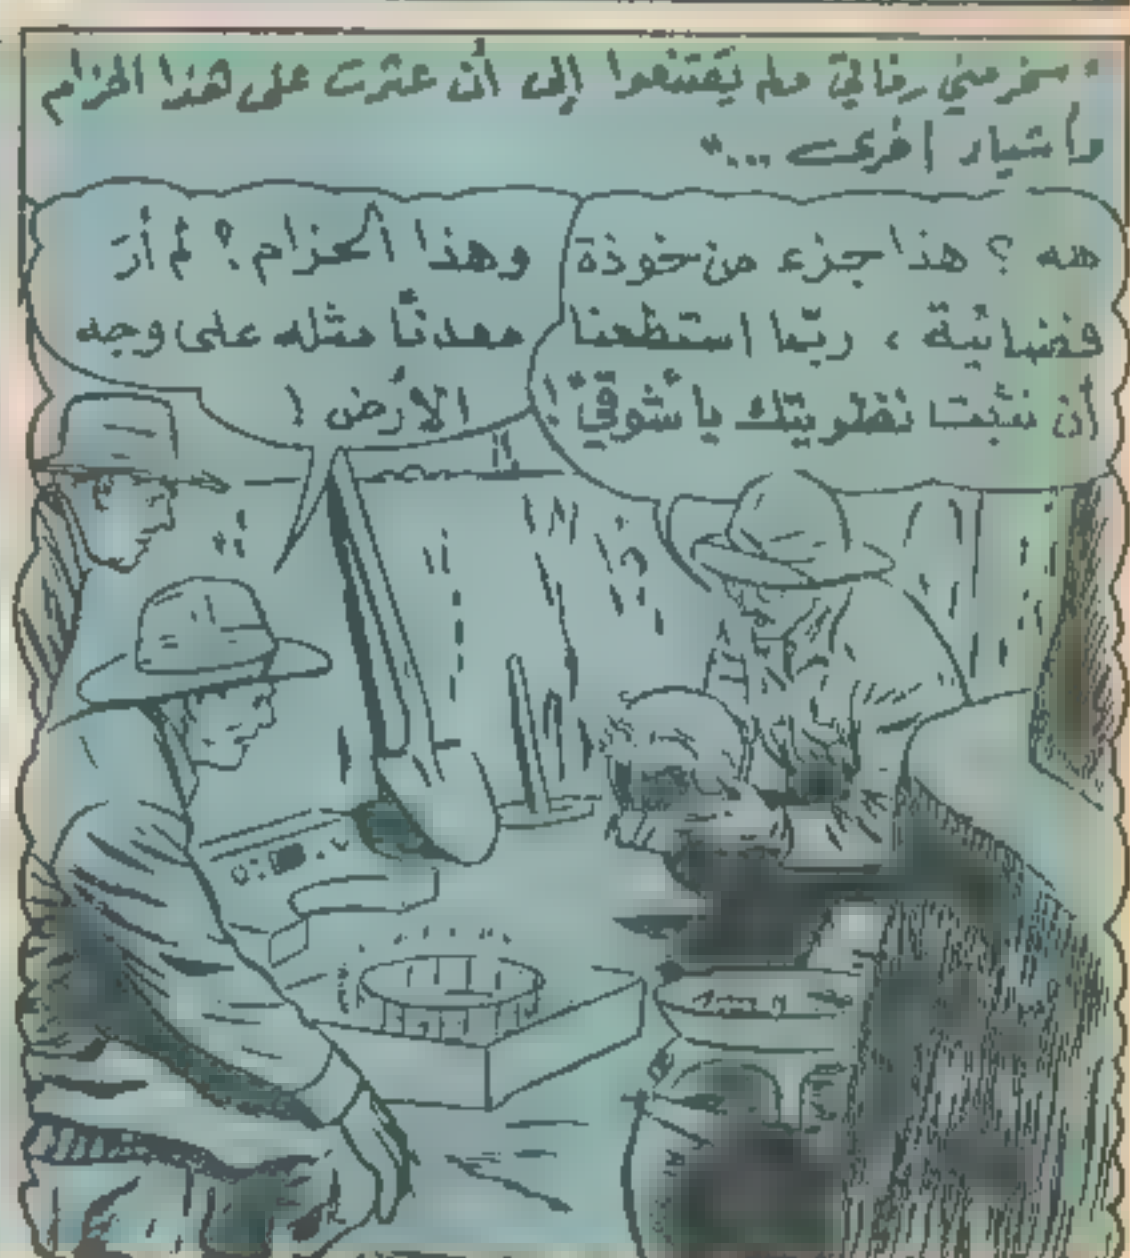 "سخر مني رفاقي ولم يقتنعوا إلى أن عثرت على هذا الحزام
وأشياء أخرى ..."
هه ؟ هذا جزء من خوذة
فضائية ، ربّما استطعنا
أن نثبت نظريتك يا شوقيّ !
وهذا الحزام ؟ لم أرَ
معدنًا مثله على وجه
الأرض !